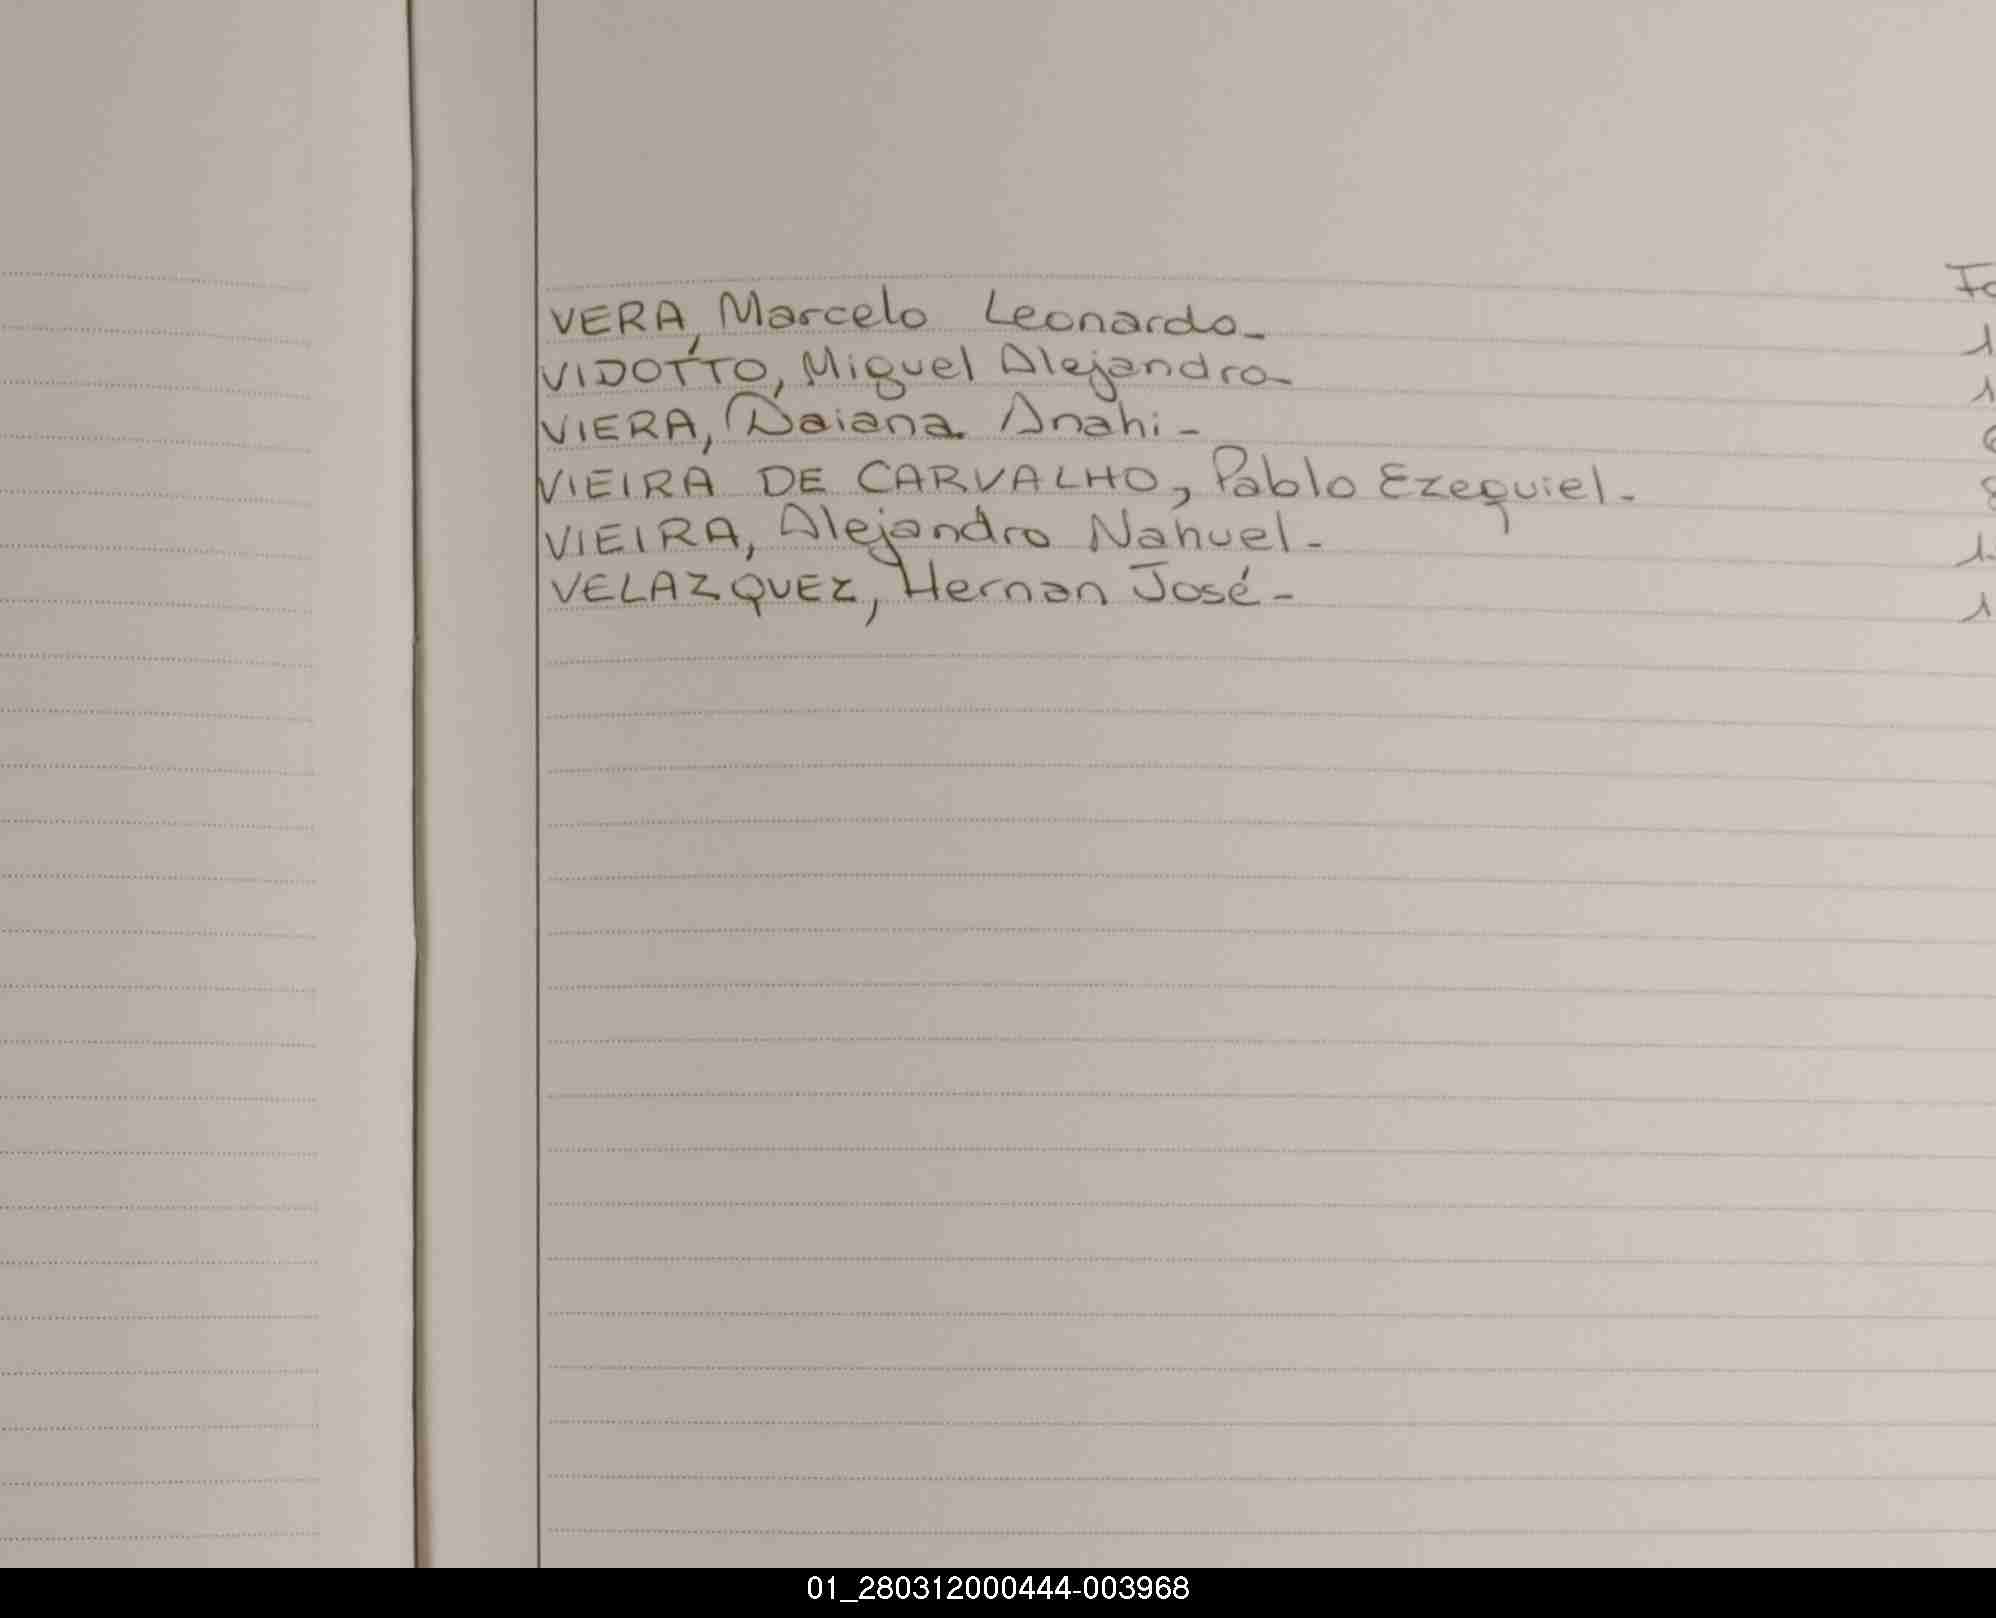 Fo
VERA, Marcelo Leonardo_ 1
VIDOTTO, Miguel Alejandro_ 1
VIERA, Daiana Anahi -
VIEIRA DE CARVALHO, Pablo Ezequiel -
VIEIRA, Alejandro Nahuel - 1
VELAZQUEZ, Hernan José - 1
01_280312000444-003968